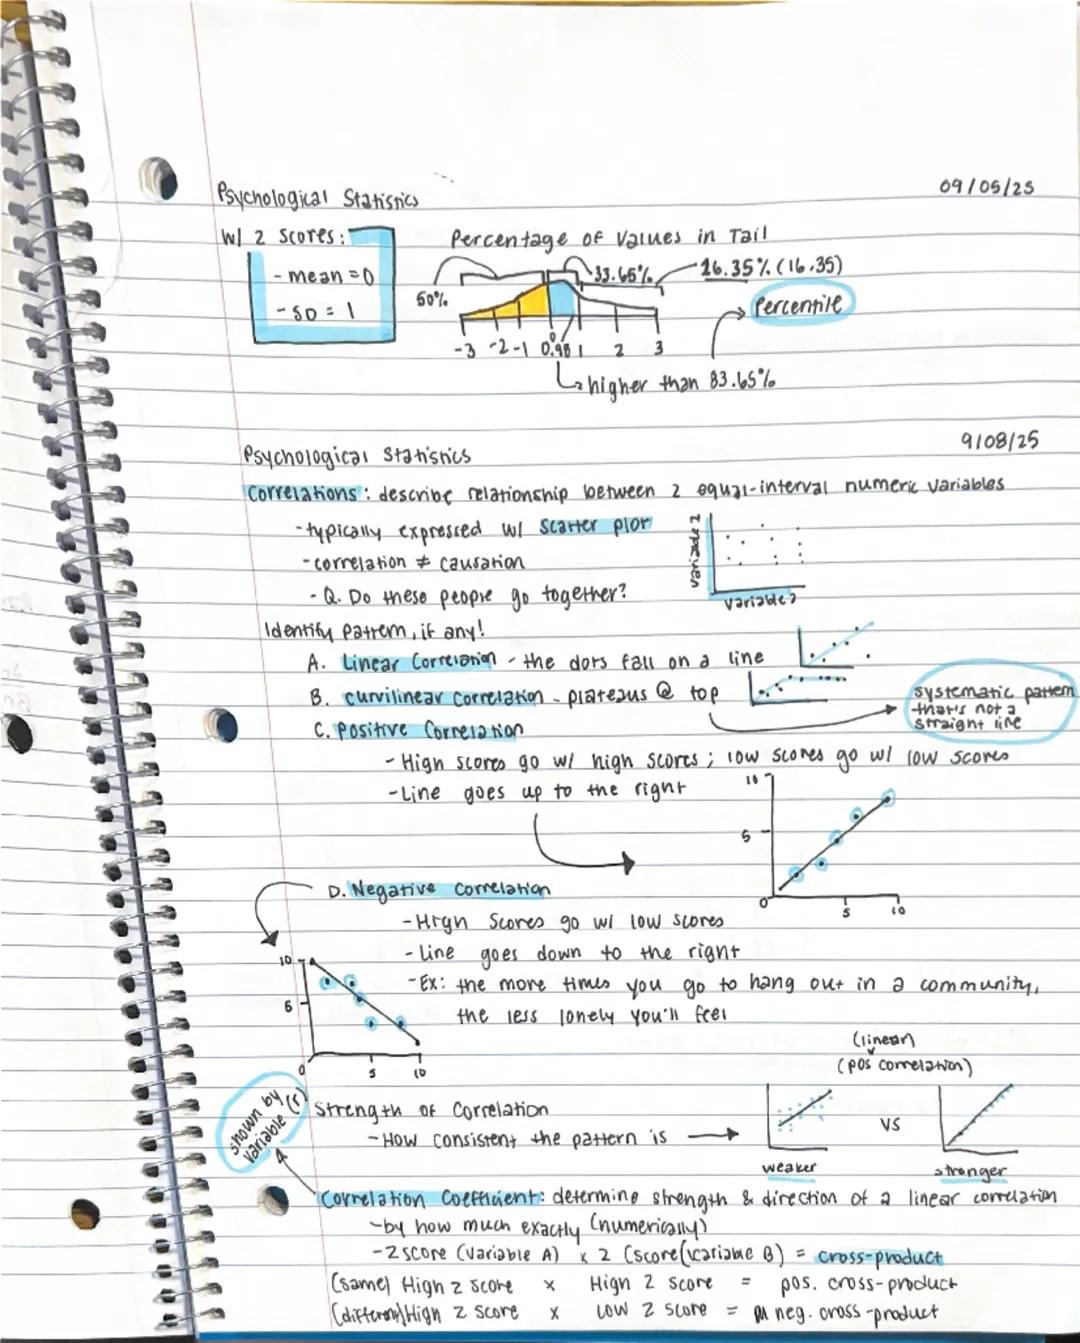 Psychological Statistics 09/05/25
W/ 2 scores: Percentage of Values in Tail
- mean = 0
- SD = 1
50% 33.65% 16.35% (16.35)
Percentile
-3 -2 -1 0 .98 1 2 3
higher than 83.65%
Psychological Statistics 9/08/25
Correlations: describe relationship between 2 equal-interval numeric variables
- typically expressed w/ scatter plot
- correlation ≠ causation
- Q. Do these people go together?
variable 2
variable ?
Identify pattern, if any!
A. Linear Correlation - the dots fall on a line
B. curvilinear correlation - plateaus @ top
systematic pattern
that's not a
straight line
C. Positive Correlation
- High scores go w/ high scores; low scores go w/ low scores
- Line goes up to the right
10
5
0 5 10
D. Negative Correlation
- High Scores go w/ low scores
- Line goes down to the right
- Ex: the more times you go to hang out in a community,
the less lonely you'll feel
10
5
0 5 10
(linear)
(pos correlation)
shown by
variable (r)
Strength of Correlation
- How consistent the pattern is
VS
weaker stronger
Correlation Coefficient: determine strength & direction of a linear correlation
- by how much exactly (numerically)
- Z score (Variable A) x Z (score(variable B) = cross-product
(same) High Z score x High Z score = pos. cross-product
(different) High Z score x Low Z score = neg. cross-product